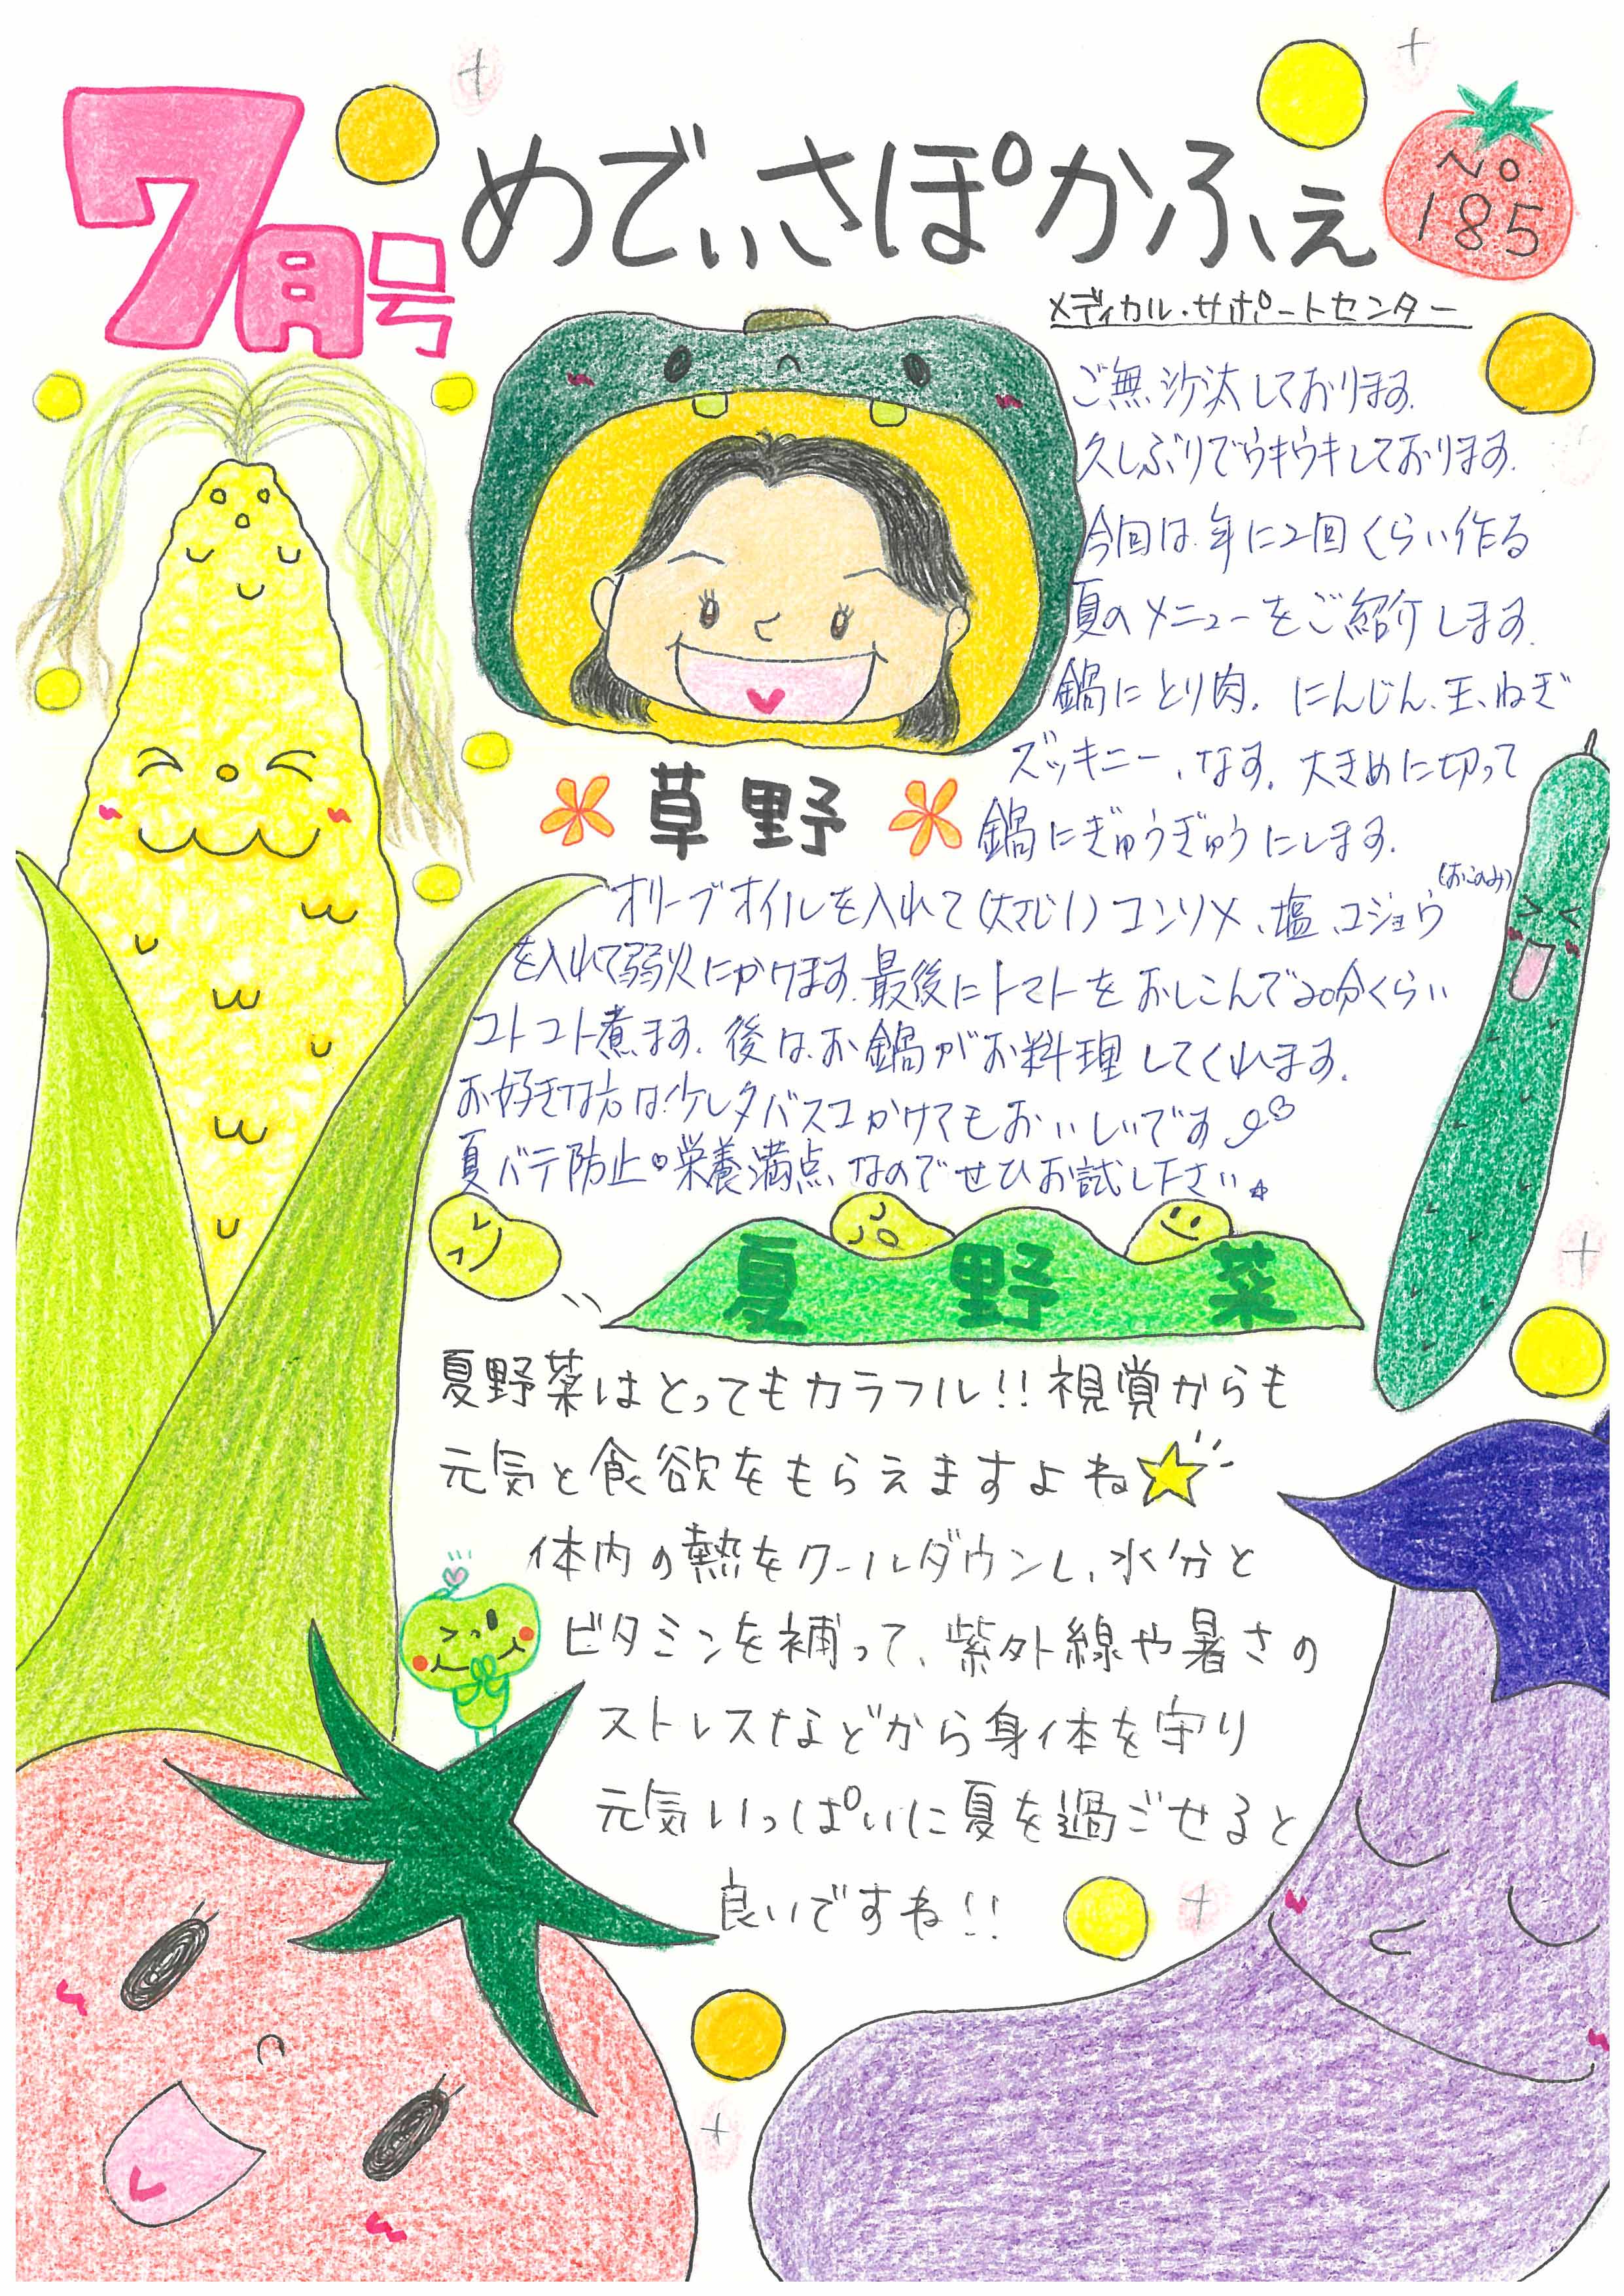 7月号
めでぃさぽかふぇ
No.
185
メディカル・サポートセンター
ご無沙汰しております。
久しぶりでウキウキしております。
今回は、年に2回くらい作る
夏のメニューをご紹介します。
鍋にとり肉。にんじん、玉ねぎ
ズッキーニ、なす。大きめに切って
草野
鍋にぎゅうぎゅうにします。
オリーブオイルを入れて(大さじ1)コンソメ、塩、コショウ(おこのみ)
を入れて弱火にかけます。最後にトマトをおしこんで20分くらい
コトコト煮ます。後は、お鍋がお料理してくれます。
お好きな方は、ケレタバスコかけてもおいしいです
夏バテ防止・栄養満点なのでぜひお試し下さい☆
夏野菜
夏野菜はとってもカラフル!!視覚からも
元気と食欲をもらえますよね
体内の熱をクールダウンし、水分と
ビタミンを補って、紫外線や暑さの
ストレスなどから身体を守り
元気いっぱいに夏を過ごせると
良いですね!!